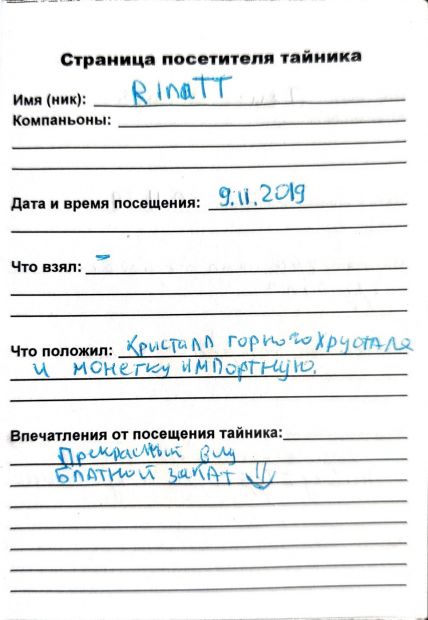 Страница посетителя тайника
Имя (ник): RinaTT
Компаньоны:
Дата и время посещения: 9.11.2019
Что взял: –
Что положил: Кристалл горного хрусталя
и монетку импортную.
Впечатления от посещения тайника:
Прекрасный вид
Блатной закат !!